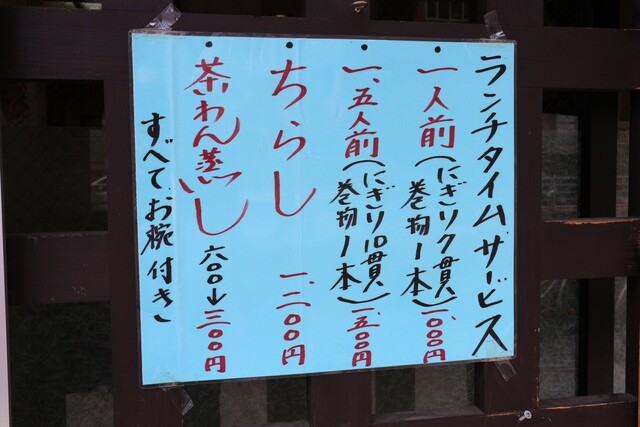 ランチタイムサービス
・一人前(にぎり7貫 巻物1本)一、〇〇〇円
・一、五人前(にぎり10貫 巻物1本)一、五〇〇円
・ちらし 一、二〇〇円
・茶わん蒸し 六〇〇↓三〇〇円
すべてお椀付き